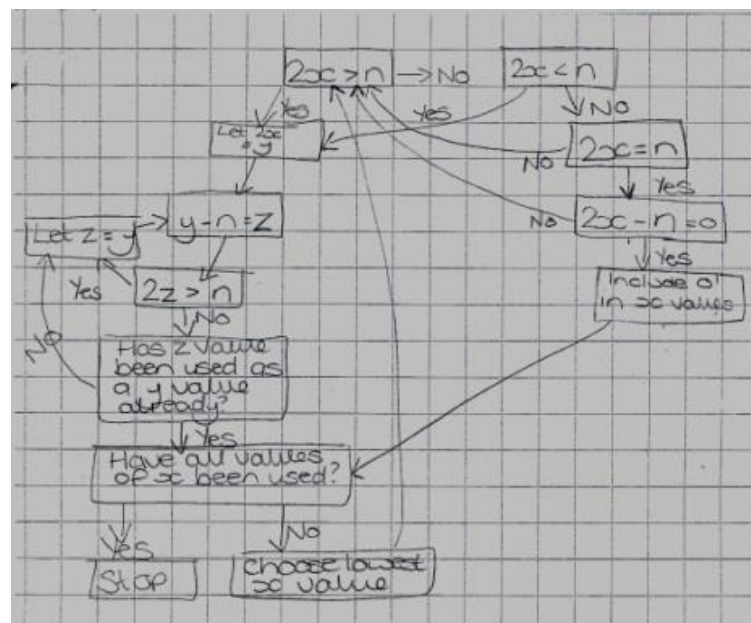 2x > n → No
2x < n
Yes
Yes
No
Let 2x
= y
2x = n
No
Yes
y - n = z
Let z = y
2x - n = 0
No
Yes
Yes
2z > n
Include 0
in x values
No
No
Has z value
been used as
a y value
already?
Yes
Have all values
of x been used?
Yes
No
Stop
choose lowest
x value